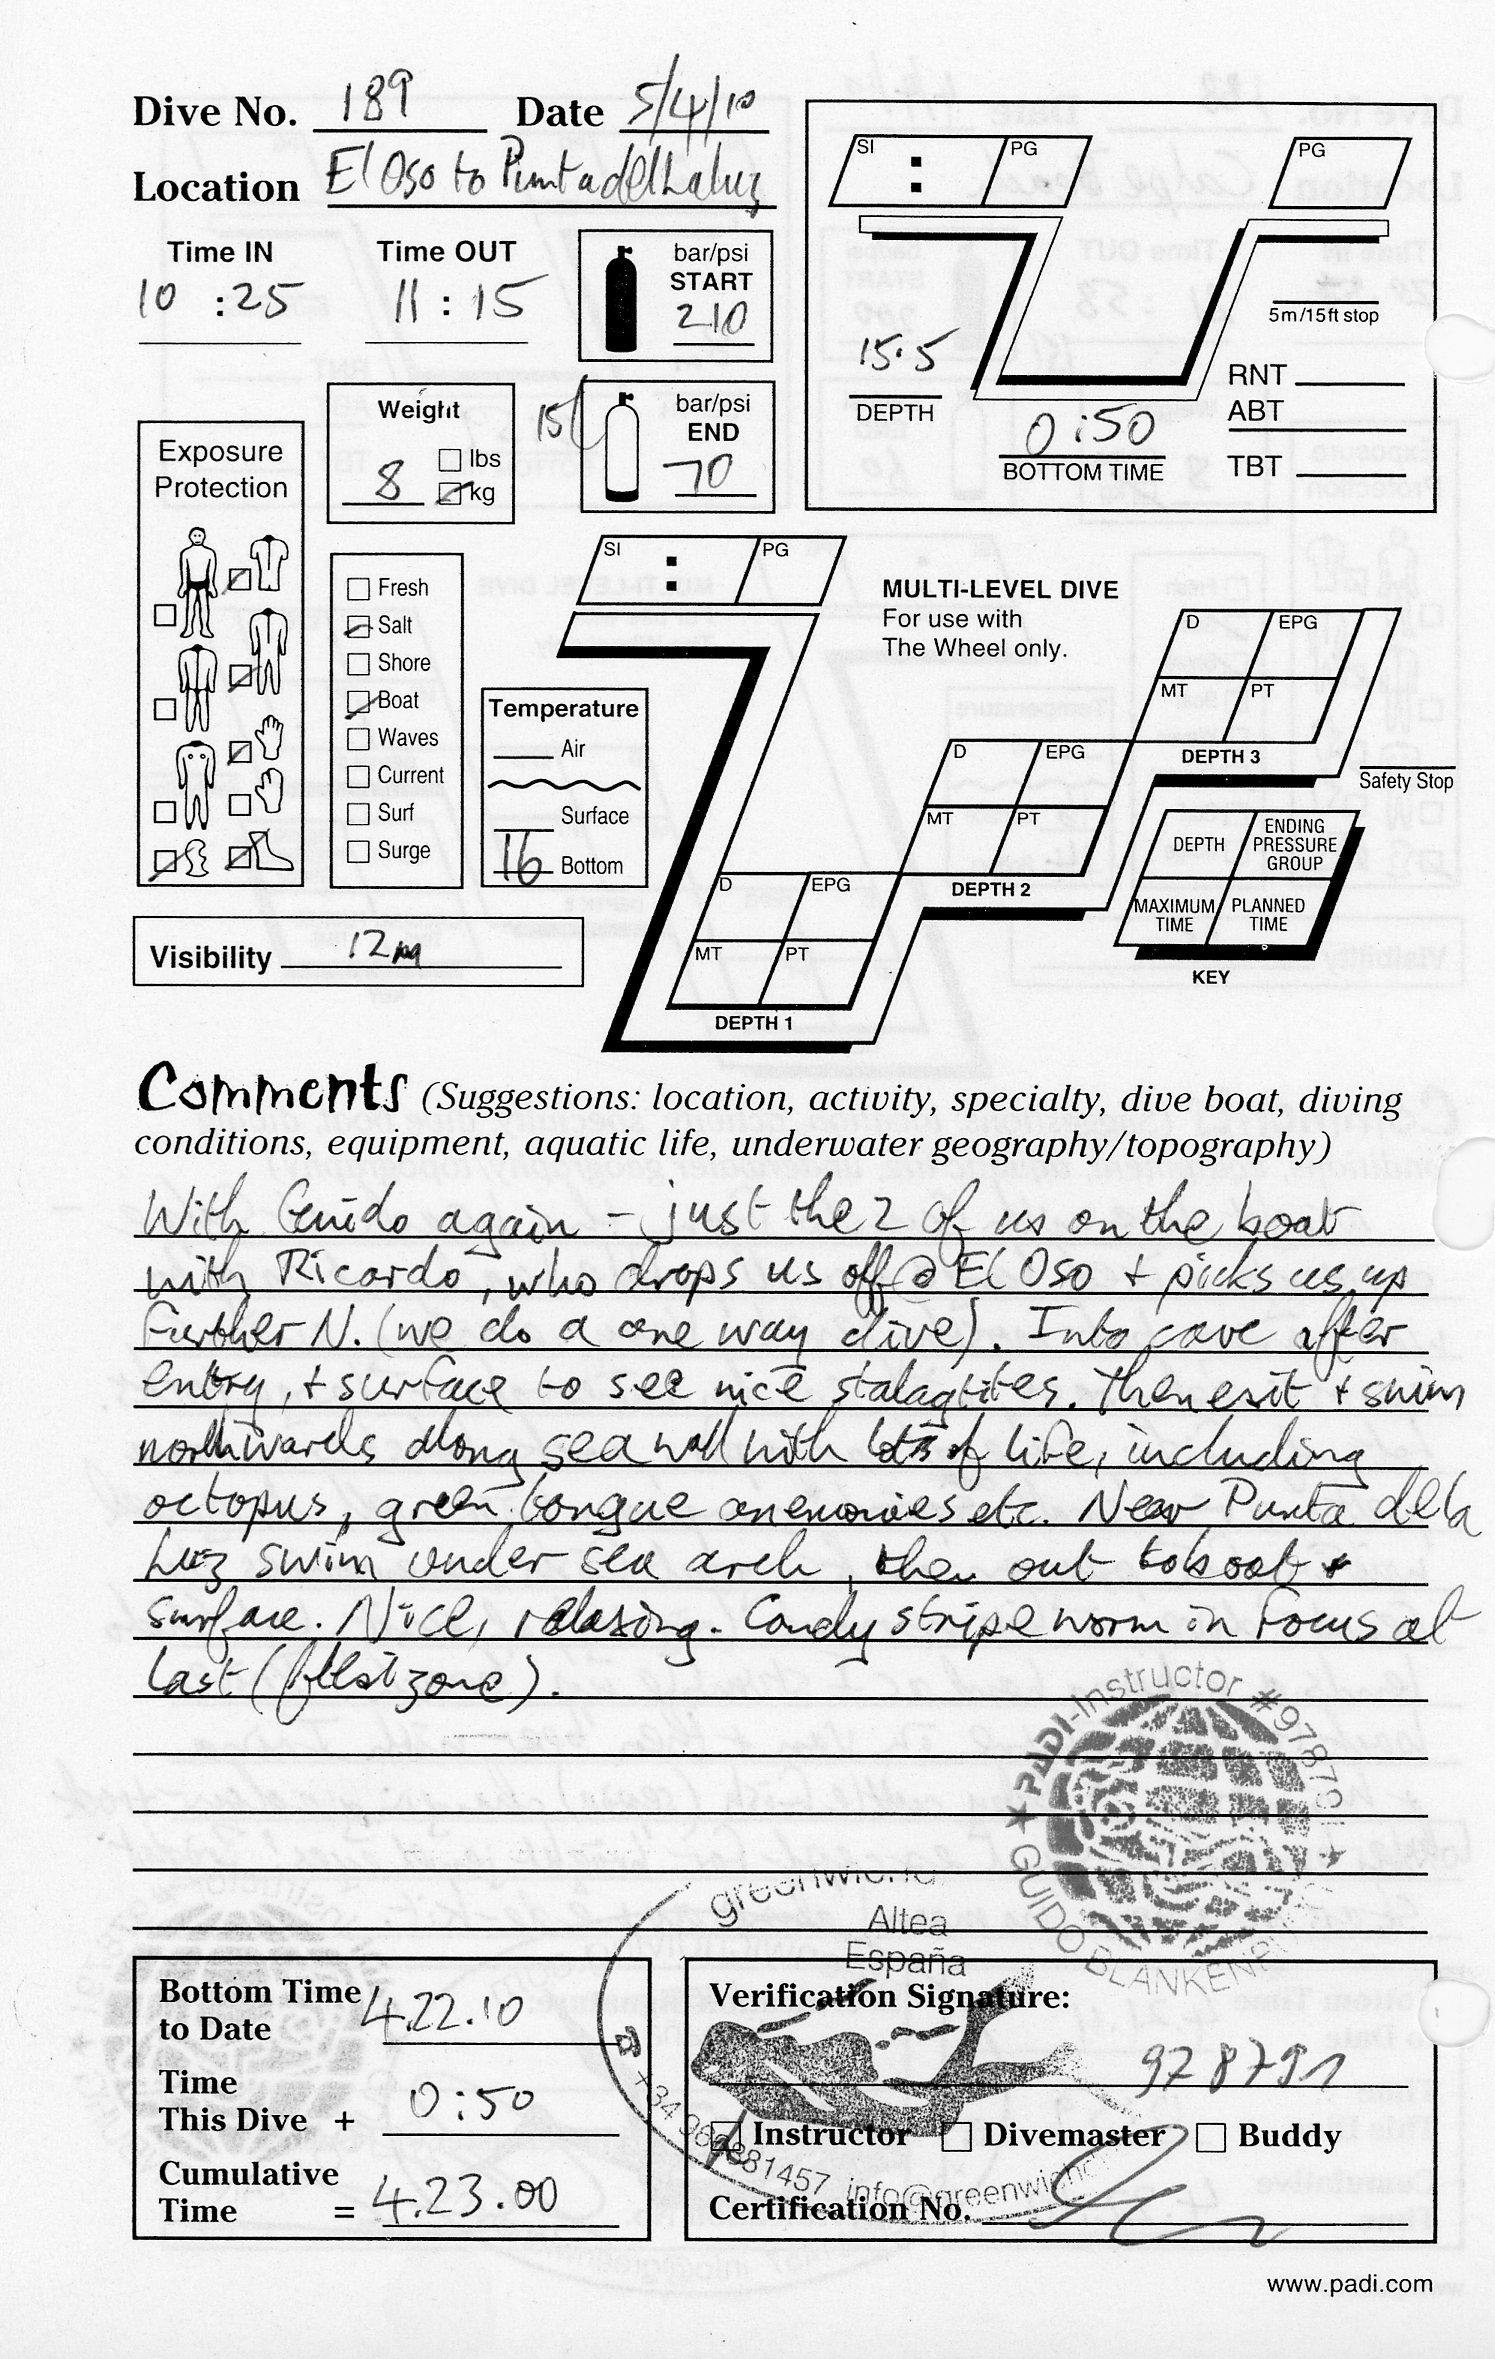 Dive No. 189 Date 5/4/10
Location El Oso to Punta del La Luz
Time IN Time OUT
10 :25 11:15
bar/psi
START
210
15l
bar/psi
END
70
SI : PG
PG
5m/15ft stop
15.5
DEPTH
0:50
BOTTOM TIME
RNT
ABT
TBT
Weight
8
lbs
kg
Exposure
Protection
Fresh
Salt
Shore
Boat
Waves
Current
Surf
Surge
Temperature
Air
Surface
16 Bottom
Visibility 12m
SI : PG
MULTI-LEVEL DIVE
For use with
The Wheel only.
D EPG
MT PT
DEPTH 3
Safety Stop
D EPG
MT PT
DEPTH 2
D EPG
MT PT
DEPTH 1
DEPTH
ENDING
PRESSURE
GROUP
MAXIMUM
TIME
PLANNED
TIME
KEY
Comments (Suggestions: location, activity, specialty, dive boat, diving
conditions, equipment, aquatic life, underwater geography/topography)
With Guido again - just the 2 of us on the boat
with Ricardo, who drops us off @ El Oso + picks us up
further N. (we do a one way dive). Into cave after
entry, + surface to see nice stalagtites. Then exit + swim
northwards along sea wall with lots of life, including
octopus, green tongue anemonies etc. Near Punta de la
Luz swim under sea arch, then out to boat +
surface. Nice, relaxing. Candy stripe worm in focus at
last
PADI-Instructor #978791
GUIDO
Altea
España
+34
81457
Bottom Time
to Date 4.22.10
Time
This Dive + 0:50
Cumulative
Time = 4.23.00
Verification Signature:
978791
Instructor Divemaster Buddy
Certification No.
www.padi.com